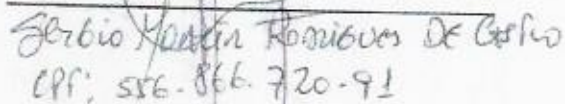 Sérgio Martin Rodrigues DE Castro
CPF: 556.866.720-91